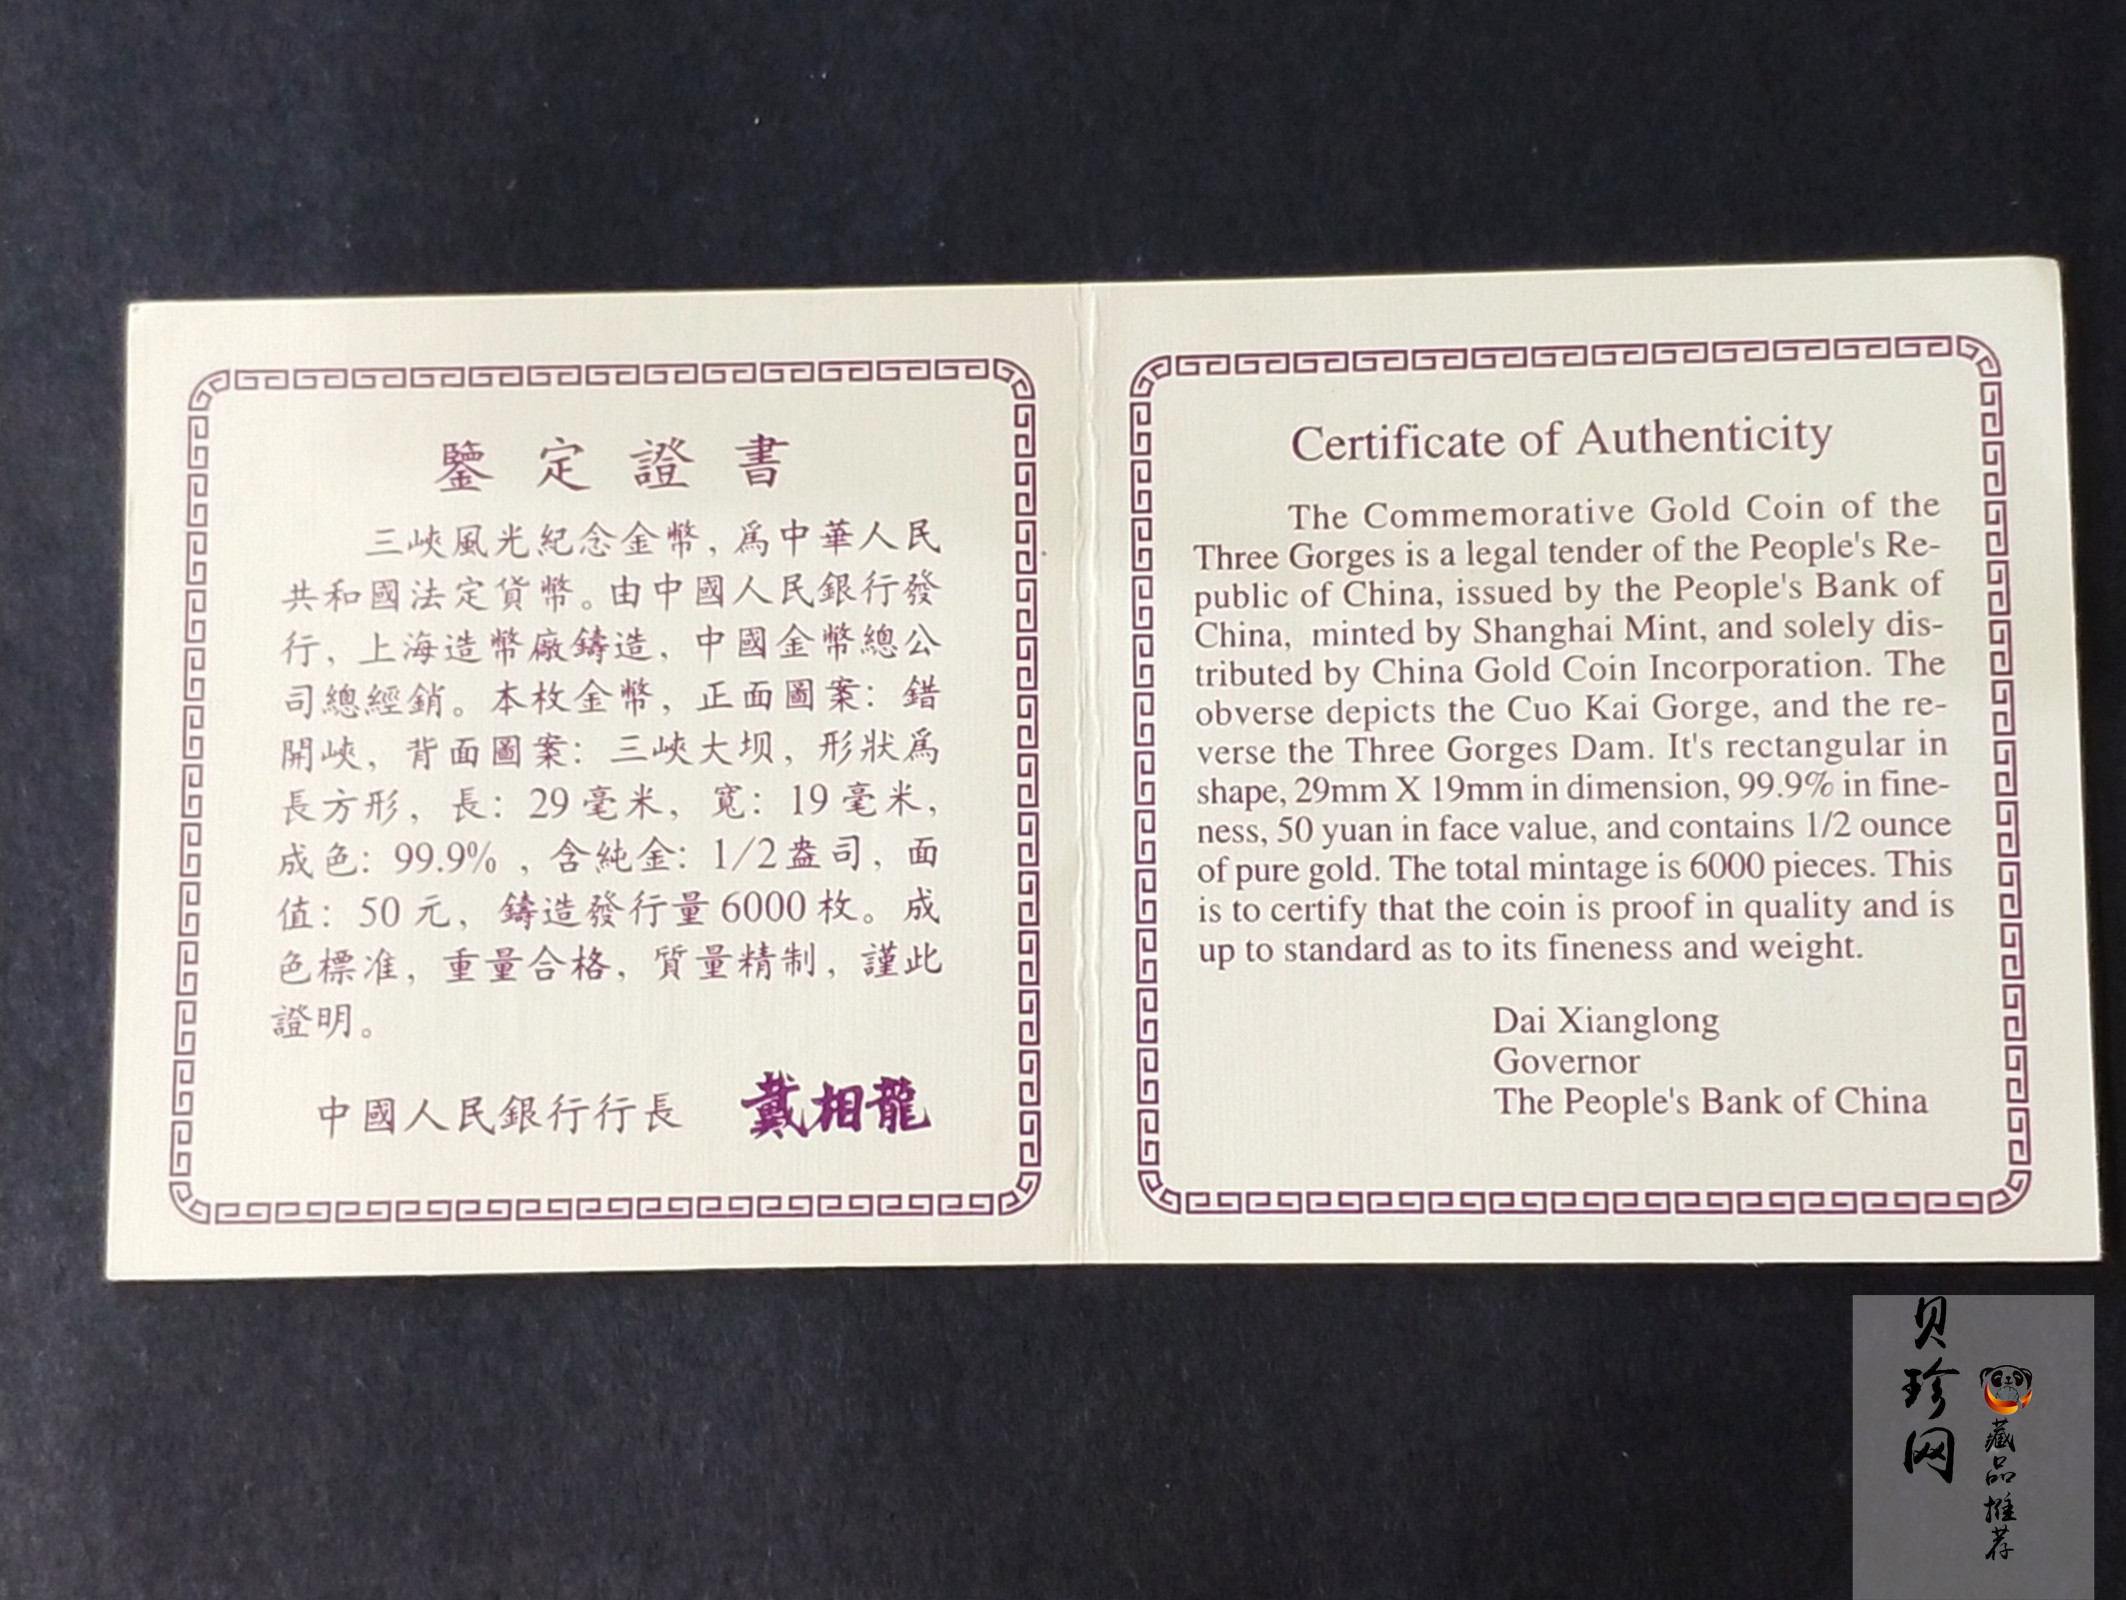 鑒定證書
三峽風光紀念金幣，爲中華人民
共和國法定貨幣。由中國人民銀行發
行，上海造幣廠鑄造，中國金幣總公
司總經銷。本枚金幣，正面圖案：錯
開峽，背面圖案：三峽大坝，形狀爲
長方形，長：29毫米，寬：19毫米，
成色：99.9%，含純金：1/2盎司，面
值：50元，鑄造發行量6000枚。成
色標准，重量合格，質量精制，謹此
證明。
中國人民銀行行長 戴相龍
Certificate of Authenticity
The Commemorative Gold Coin of the
Three Gorges is a legal tender of the People's Re-
public of China, issued by the People's Bank of
China, minted by Shanghai Mint, and solely dis-
tributed by China Gold Coin Incorporation. The
obverse depicts the Cuo Kai Gorge, and the re-
verse the Three Gorges Dam. It's rectangular in
shape, 29mm X 19mm in dimension, 99.9% in fine-
ness, 50 yuan in face value, and contains 1/2 ounce
of pure gold. The total mintage is 6000 pieces. This
is to certify that the coin is proof in quality and is
up to standard as to its fineness and weight.
Dai Xianglong
Governor
The People's Bank of China
贝珍网
藏品推荐